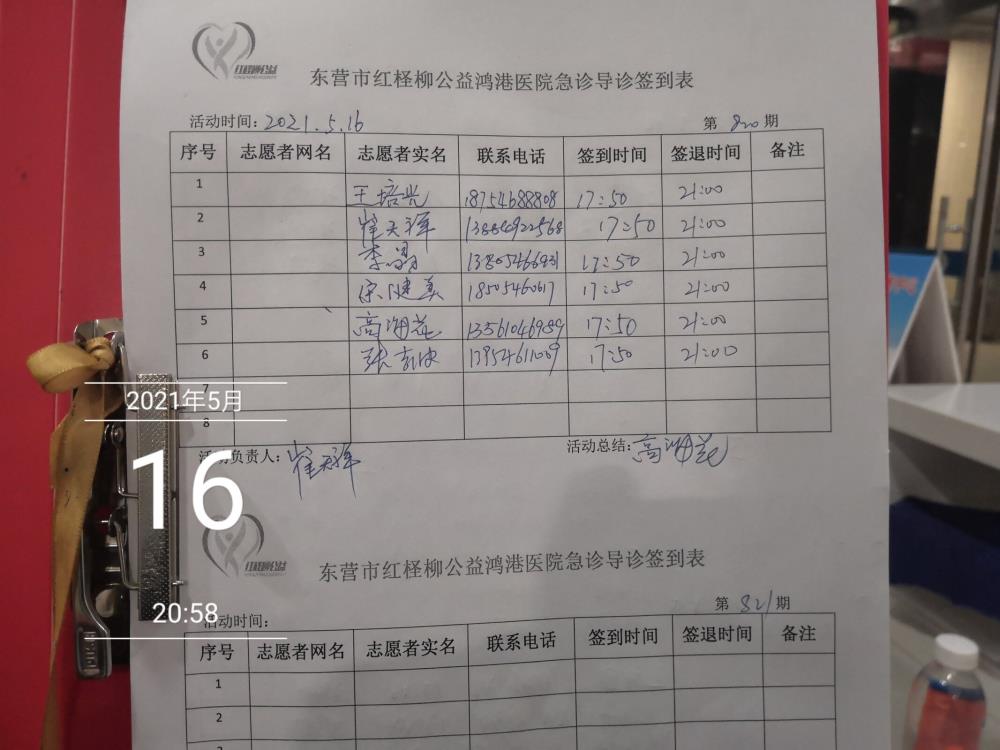 红柽柳公益
东营市红柽柳公益鸿港医院急诊导诊签到表
活动时间: 2021.5.16 第 820 期
序号 志愿者网名 志愿者实名 联系电话 签到时间 签退时间 备注
1 王培兴 18754688808 17:50 21:00
2 崔天祥 13884922568 17:50 21:00
3 李 13805466931 17:50 21:00
4 宋健真 18505460617 17:50 21:00
5 高湘花 13561046989 17:50 21:00
6 张 13954611009 17:50 21:00
7
8
2021年5月
16
20:58
活动负责人: 崔天祥 活动总结: 高湘花
红柽柳公益
东营市红柽柳公益鸿港医院急诊导诊签到表
活动时间: 第 821 期
序号 志愿者网名 志愿者实名 联系电话 签到时间 签退时间 备注
1
2